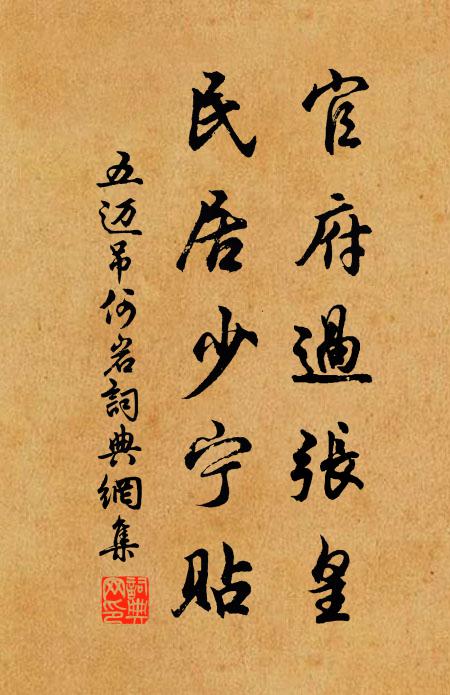 官府過張皇
民居少宁貼
五迈吊何岩詞典網集
詞典網印